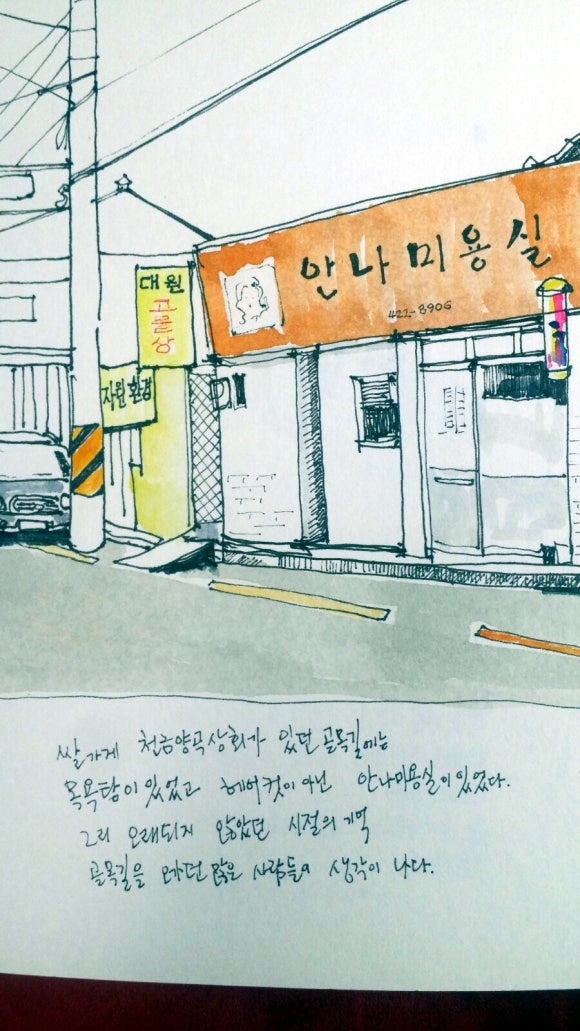 안나미용실
421-8906
대원
고물상
자원환경
쌀가게 천금양곡상회가 있던 골목길에는
목욕탕이 있었고 헤어컷이 아닌 안나미용실이 있었다.
그리 오래되지 않았던 시절의 기억
골목길을 오가던 많은 사람들이 생각이 나다.